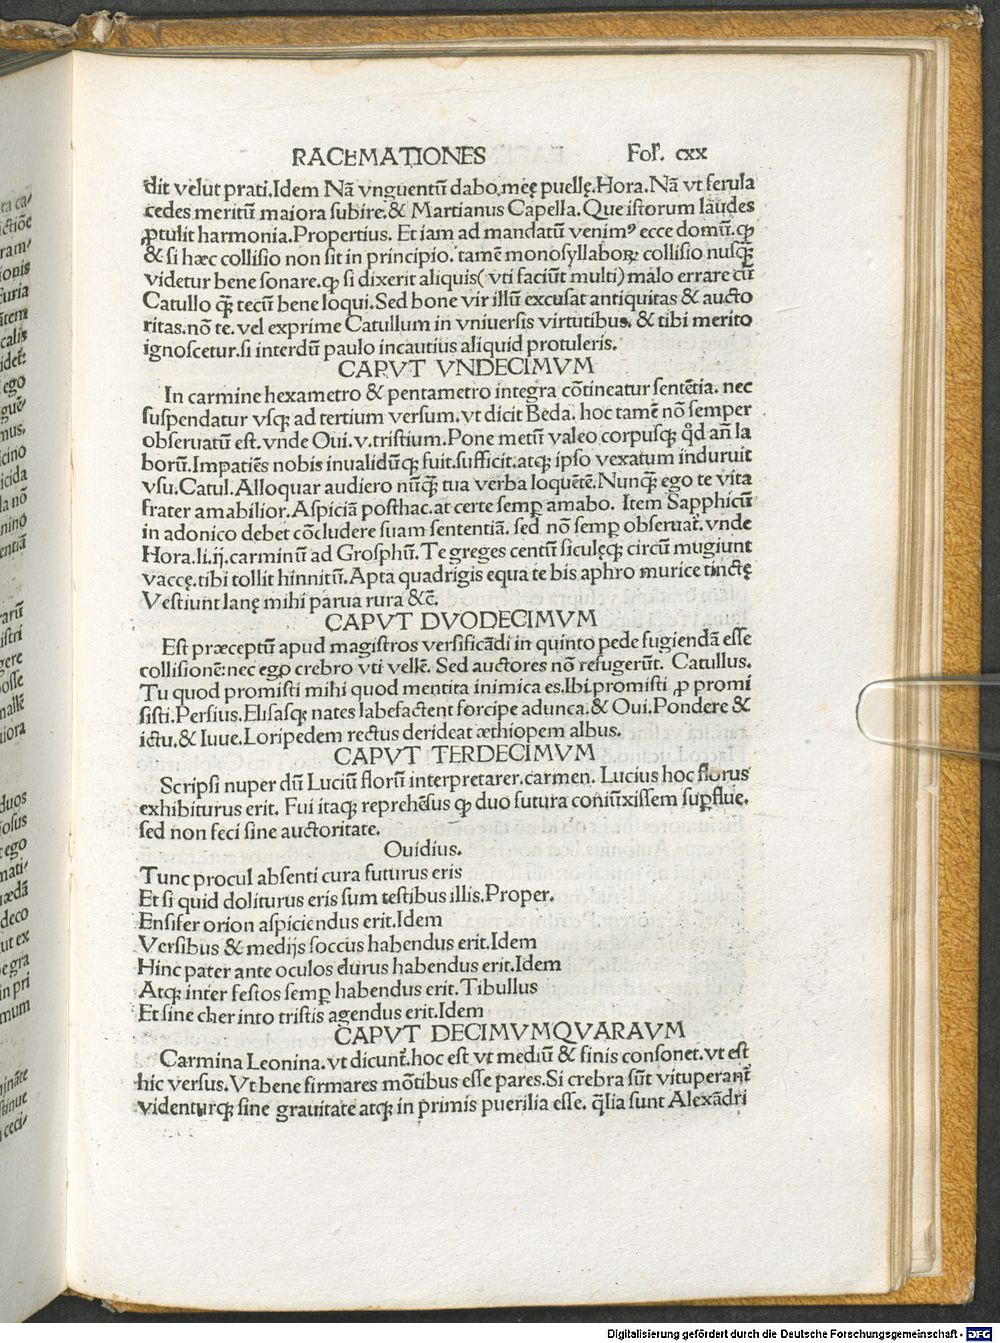 RACEMATIONES Fol'. cxx
dit velut prati.Idem Nā vnguentū dabo.meę puellę.Hora.Nā vt ferula
cedes meritū maiora subire.& Martianus Capella.Que istorum laudes
ꝓtulit harmonia.Propertius. Et iam ad mandatū venimꝰ ecce domū.ꝙ
& si hæc collisio non sit in principio. tamē monosyllaboꝝ collisio nusꝗ̄
videtur bene sonare.ꝙ si dixerit aliquis( vti faciūt multi) malo errare cū
Catullo ꝗ̄ tecū bene loqui. Sed bone vir illū excusat antiquitas & aucto
ritas.nō te. vel exprime Catullum in vniuersis virtutibus. & tibi merito
ignoscetur.si interdū paulo incautius aliquid protuleris.
CAPVT VNDECIMVM
In carmine hexametro & pentametro integra cōtineatur sentētia. nec
suspendatur vsqꝫ ad tertium versum. vt dicit Beda. hoc tamē nō semper
obseruatū est. vnde Oui. v.tristium. Pone metū valeo corpusqꝫ qd̄ an̄ la
borū.Impatiēs nobis inualidūqꝫ fuit.sufficit.atqꝫ ipso vexatum induruit
vsu.Catul.Alloquar audiero nūꝗ̄ tua verba loquētē.Nunꝗ̄ ego te vita
frater amabilior.Aspiciā posthac.at certe semꝑ amabo. Item Sapphicū
in adonico debet cōcludere suam sententiā. sed nō semꝑ obseruat᷑. vnde
Hora.li.ij.carminū ad Grosphū. Te greges centū siculęqꝫ circū mugiunt
vaccę.tibi tollit hinnitū.Apta quadrigis equa te bis aphro murice tinctę
Vestiunt lanę mihi parua rura &c̄.
CAPVT DVODECIMVM
Est præceptū apud magistros versificādi in quinto pede fugiendā esse
collisionē:nec ego crebro vti vellē. Sed auctores nō refugerūt. Catullus.
Tu quod promisti mihi quod mentita inimica es.Ibi promisti ꝓ promi
sisti.Persius.Elisasqꝫ nates labefactent forcipe adunca.& Oui.Pondere &
ictu.& Iuue.Loripedem rectus derideat æthiopem albus.
CAPVT TERDECIMVM
Scripsi nuper dū Luciū florū interpretarer.carmen. Lucius hoc florus
exhibiturus erit. Fui itaqꝫ reprehēsus ꝙ duo futura coniūxissem suꝑflue.
sed non feci sine auctoritate.
Ouidius.
Tunc procul absenti cura futurus eris
Et si quid doliturus eris sum testibus illis.Proper.
Ensifer orion aspiciendus erit.Idem
Versibus & medijs soccus habendus erit.Idem
Hinc pater ante oculos durus habendus erit.Idem
Atqꝫ inter festos semꝑ habendus erit. Tibullus
Et sine cher into tristis agendus erit.Idem
CAPVT DECIMVMQVARAVM
Carmina Leonina. vt dicunt᷑.hoc est vt mediū & finis consonet. vt est
hic versus. Vt bene firmares mōtibus esse pares.Si crebra sūt vituperant᷑
videnturqꝫ sine grauitate atqꝫ in primis puerilia esse. q̄lia sunt Alexādri
Digitalisierung gefördert durch die Deutsche Forschungsgemeinschaft - DFG